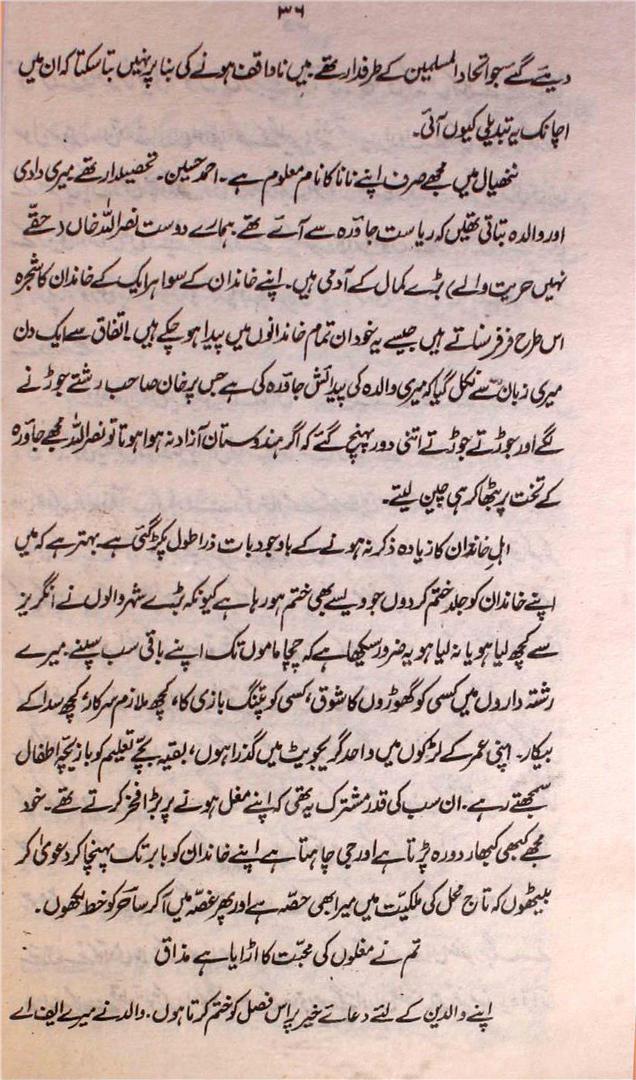 ۳۶
دیئے گئے جو اتحاد المسلمین کے طرفدار تھے میں ناواقف ہونے کی بنا پر نہیں بتا سکتا کہ ان میں
اچانک یہ تبدیلی کیوں آئی۔
ننھیال میں مجھے صرف اپنے نانا کا نام معلوم ہے۔ احمد حسین۔ تحصیلدار تھے میری دادی
اور والدہ بتاتی تھیں کہ ریاست جاورہ سے آئے تھے ہمارے دوست نصراللہ خاں (حقے
نہیں حریت والے) بڑے کمال کے آدمی ہیں۔ اپنے خاندان کے سوا ہر ایک کے خاندان کا شجرہ
اس طرح فرفر سناتے ہیں جیسے یہ خود ان تمام خاندانوں میں پیدا ہو چکے ہیں۔ اتفاق سے ایک دن
میری زبان سے نکل گیا کہ میری والدہ کی پیدائش جاورہ کی ہے جس پر خان صاحب رشتے جوڑنے
لگے اور جوڑتے جوڑتے اتنی دور پہنچ گئے کہ اگر ہندوستان آزاد نہ ہوا ہوتا تو نصراللہ مجھے جاورہ
کے تخت پر بٹھا کر ہی چین لیتے۔
اہلِ خاندان کا زیادہ ذکر نہ ہونے کے باوجود بات ذرا طول پکڑ گئی ہے بہتر ہے کہ میں
اپنے خاندان کو جلد ختم کردوں جو ویسے بھی ختم ہو رہا ہے کیونکہ بڑے شہر والوں نے انگریز
سے کچھ لیا ہو یا نہ لیا ہو یہ ضرور سیکھا ہے کہ چچا ماموں تک اپنے باقی سب سپلنے۔ میرے
رشتہ داروں میں کسی کو گھوڑوں کا شوق، کسی کو پتنگ بازی کا، کچھ ملازمِ سرکار، کچھ سدا کے
بیکار۔ اپنی عمر کے لڑکوں میں واحد گریجویٹ میں گذرا ہوں، بقیہ بچے تعلیم کو بازیچۂ اطفال
سمجھتے رہے۔ ان سب کی قدرِ مشترک یہ تھی کہ اپنے مغل ہونے پر بڑا فخر کرتے تھے۔ خود
مجھے کبھی کبھار دورہ پڑتا ہے اور جی چاہتا ہے اپنے خاندان کو بابر تک پہنچا کر دعویٰ کر
بیٹھوں کہ تاج محل کی ملکیّت میں میرا بھی حصّہ ہے اور پھر غصّہ میں آ کر ساحر کو خط لکھوں۔
تم نے مغلوں کی محبّت کا اڑایا ہے مذاق
اپنے والدین کے لئے دعائے خیر پر اس فصل کو ختم کرتا ہوں۔ والد نے میرے ایف اے